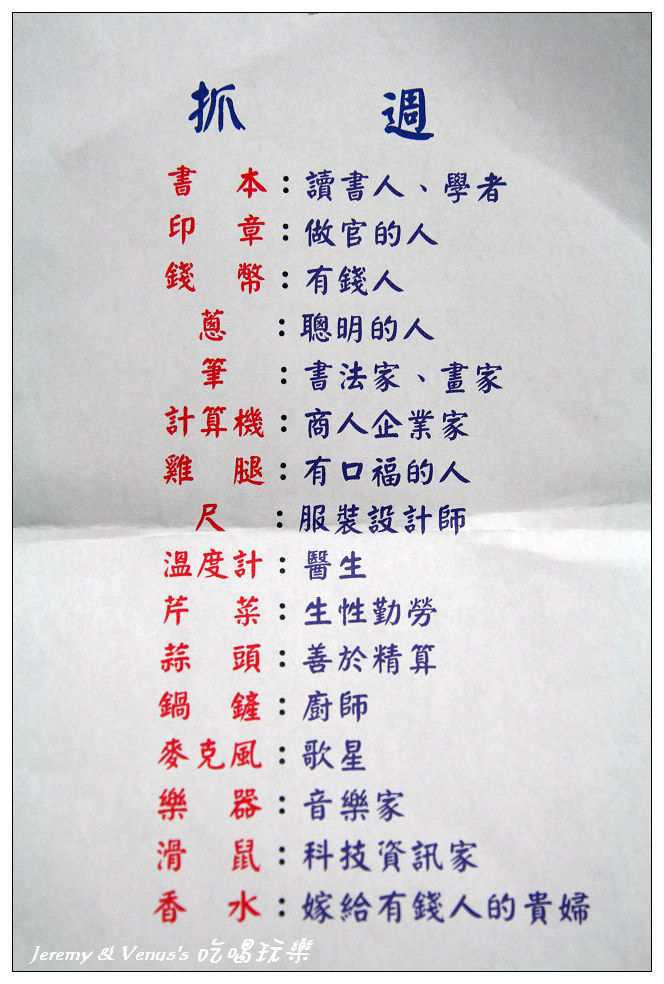 抓 週
書 本：讀書人、學者
印 章：做官的人
錢 幣：有錢人
蔥：聰明的人
筆：書法家、畫家
計算機：商人企業家
雞 腿：有口福的人
尺：服裝設計師
溫度計：醫生
芹 菜：生性勤勞
蒜 頭：善於精算
鍋 鏟：廚師
麥克風：歌星
樂 器：音樂家
滑 鼠：科技資訊家
香 水：嫁給有錢人的貴婦
Jeremy & Venus's 吃喝玩樂